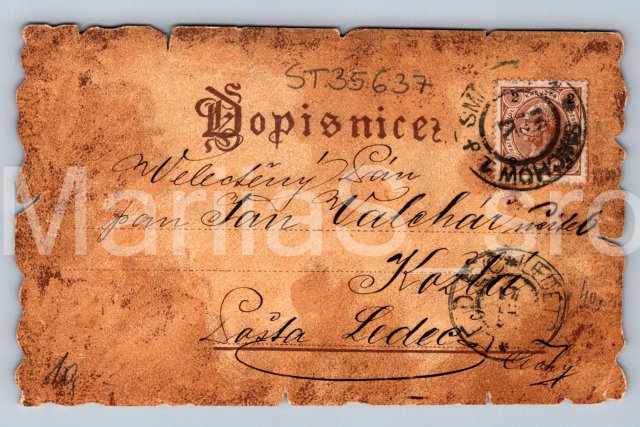 ST.35.637
Dopisnice
SMICHOW 1
Welectěný Pán
pan Jan Valchář učitel
Košta
Pošta Ledec
LEDEČ
Čechy
19
MariiaS_sro